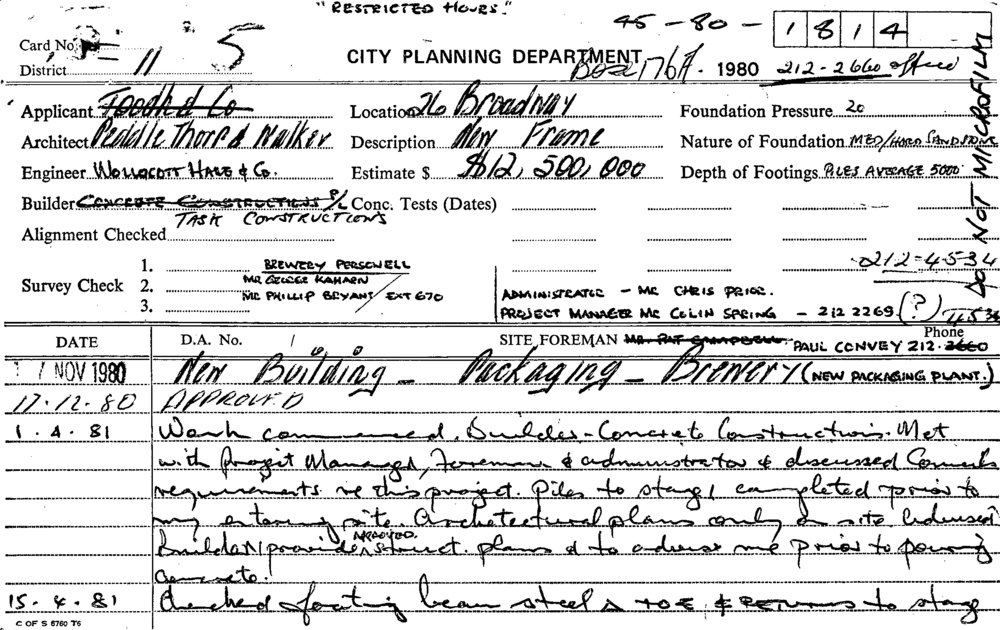 "RESTRICTED HOURS."
45-80- 1814
Card No.
District 11 5 CITY PLANNING DEPARTMENT 1767. 1980 212-2660 office
DO NOT MICROFILM
Applicant Foodh & Co Location 26 Broadway Foundation Pressure 20
Architect Peddle Thorp & Walker Description New Frame Nature of Foundation MED/HARD SANDSTONE
Engineer WOLLOCOTT HALE & Co. Estimate $ $12,500,000 Depth of Footings PILES AVERAGE 5000
Builder CONCRETE CONSTRUCTIONS P/L Conc. Tests (Dates)
TASK CONSTRUCTIONS
Alignment Checked
212-4534
Survey Check 1. BREWERY PERSONELL
2. MR GEORGE KAHARN
MR PHILLIP BRYANT EXT 670
3.
ADMINISTRATOR - MR CHRIS PRIOR.
PROJECT MANAGER MR COLIN SPRING - 212 2269 (?) 4534
DATE D.A. No. / SITE FOREMAN MR PAT CAMPBELL PAUL CONVEY Phone 212-2660
17 NOV 1980 New Building - Packaging - Brewery (NEW PACKAGING PLANT.)
17.12.80 APPROVED
1.4.81 Work commenced. Builder - Concrete Constructions. Met
with Project Manager, Foreman & administrator & discussed Councils
requirements re this project. Piles to stage 1 completed prior to
my entering site. Architectural plans only on site. Advised
builder provide APPROVED struct. plans & to advise me prior to pouring
concrete.
15.4.81 Checked footing beam steel & TOE & RETURNS to stage
C OF S 6760 T6